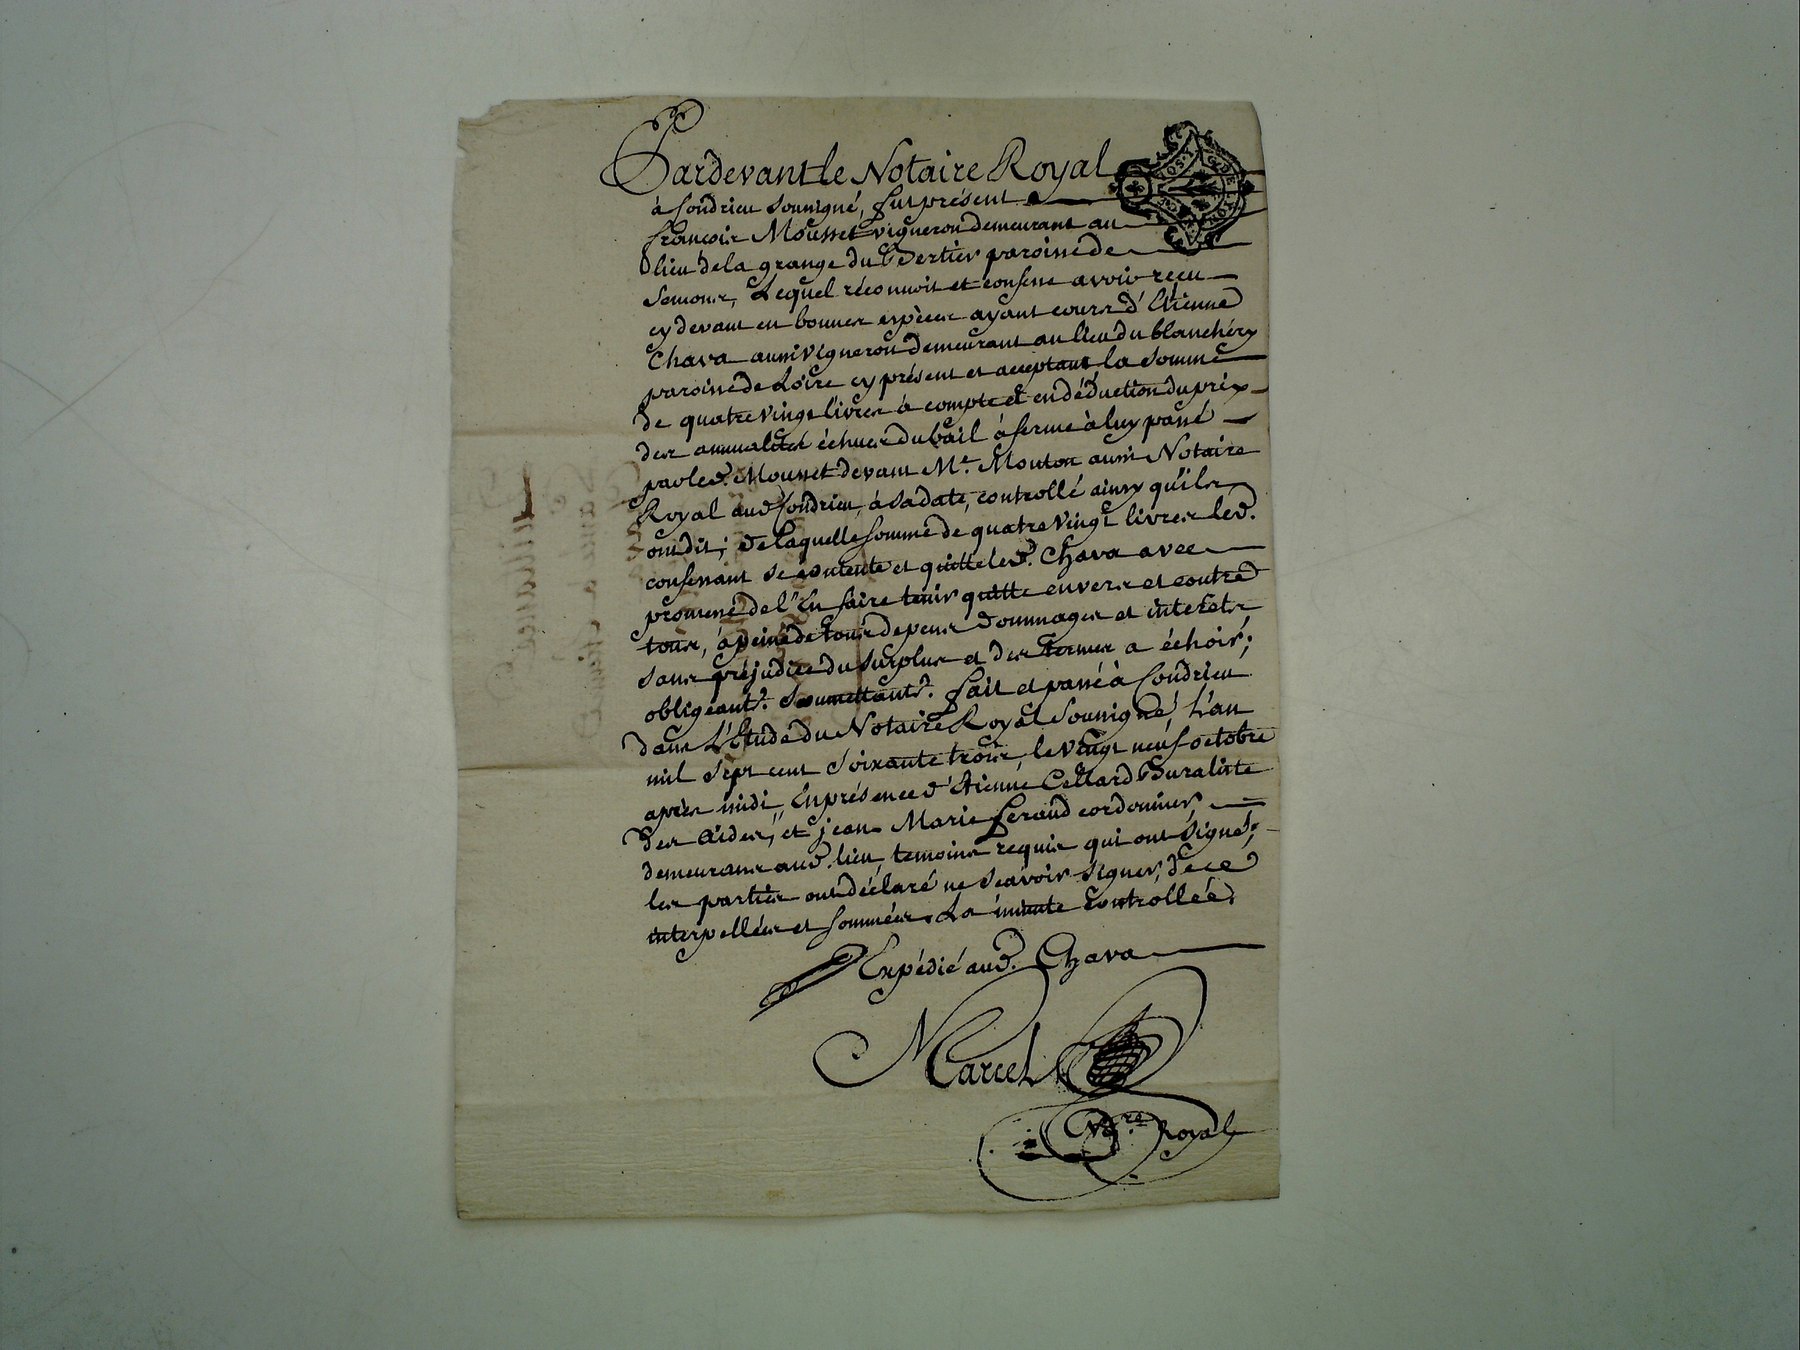 Pardevant le Notaire Royal
à Condrieu soussigné, fut présent
françois Mousset vigneron demeurant au
lieu de la grange du Vertier paroisse de
Semons, Lequel réconnoit et confesse avoir reçu
cy devant en bonnes espèces ayant cours d'Etienne
Chava aussi vigneron demeurant au lieu du blanchéry
paroisse de Loire cy présent et acceptant la somme
de quatre vingt livres à compte et en déduction du prix
des annualités échues du bail à ferme à luy passé
par led. Mousset devant Me. Mouton aussi Notaire
Royal aud Condrieu, à sa date, controllé ainsy qu'ils
ont dit; de laquelle somme de quatre vingt livres led.
confessant se contente et quitte led. Chava avec
promesse de l'En faire tenir quitte envers et contre
tous, à peine de tous depens dommages et interets
sans préjudice du surplus et des termes a échoir;
obligeant. soumettant. fait et passé à Condrieu
dans L'Etude du Notaire Royal soussigné, L'an
mil sept cent soixante trois, le vingt neuf octobre
après midi, En présence d'Etienne Cellard Buraliste
des aides, et jean Marie feraud cordonnier
demeurans aud. lieu, temoins requis qui ont signé;
les parties ont déclaré ne sçavoir signer, de ce
interpellées et sommées. La minute controllée.
Expédié aud. Chava
Marcel
Nre. Royal